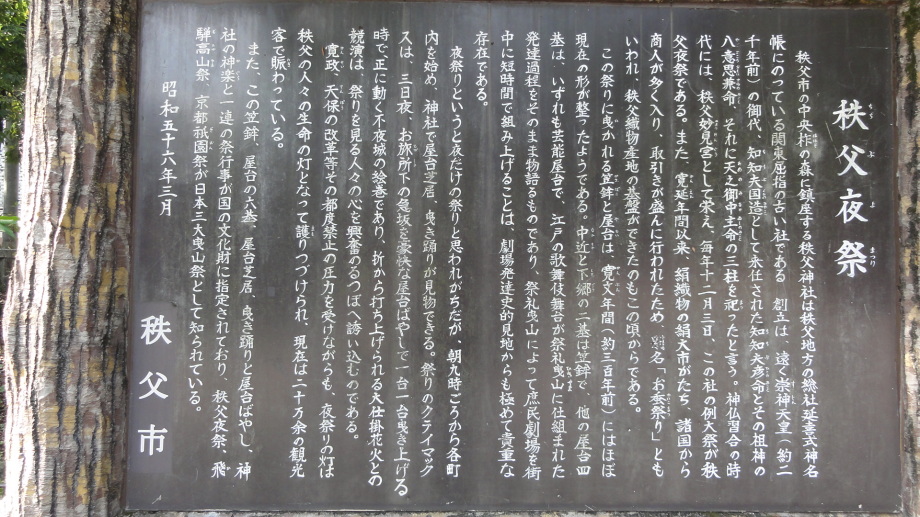 秩父夜祭
秩父市の中央柞の森に鎮座する秩父神社は秩父地方の総社延喜式神名
帳にのっている関東屈指の古い社である 創立は、遠く崇神天皇(約二
千年前)の御代、知知夫国造として永任された知知夫彦命とその祖神の
八意思兼命、それに天之御中主命の三柱を祀ったと言う。神仏習合の時
代には、秩父妙見宮として栄え、毎年十二月三日、この社の例大祭が秩
父夜祭である。また、寛延年間以来、絹織物の絹大市がたち、諸国から
商人が多く入り、取引きが盛に行われたため、別名「お蚕祭り」とも
いわれ、秩父織物産地の基盤ができたのもこの頃からである。
この祭りに曳かれる笠鉾と屋台は、寛文年間(約三百年前)にはほぼ
現在の形が整ったようである。中近と下郷の二基は笠鉾で、他の屋台四
基は、いずれも芸能屋台で、江戸の歌舞伎舞台が祭礼曳山に仕組まれた
発達過程をそのまま物語るものであり、祭礼曳山によって庶民劇場を街
中に短時間で組み上げることは、劇場発達史的見地からも極めて貴重な
存在である。
夜祭りというと夜だけの祭りと思われがちだが、朝九時ごろから各町
内を始め、神社で屋台芝居、曳き踊りが見物できる。祭りのクライマック
スは、三日夜、お旅所下の急坂を豪快な屋台ばやしで一台一台曳き上げる
時で、正に動く不夜城の絵巻であり、折から打ち上げられる大仕掛花火との
競演は、祭りを見る人々の心を興奮のるつぼへ誘い込むのである。
寛政、天保の改革等その都度禁止の圧力を受けながらも、夜祭りの灯は
秩父の人々の生命の灯となって護りつづけられ、現在は二十万余の観光
客で賑わっている。
また、この笠鉾、屋台の六基、屋台芝居、曳き踊りと屋台ばやし、神
社の神楽と一連の祭行事が国の文化財に指定されており、秩父夜祭、飛
騨高山祭、京都祇園祭が日本三大曳山祭として知られている。
昭和五十六年三月
秩父市